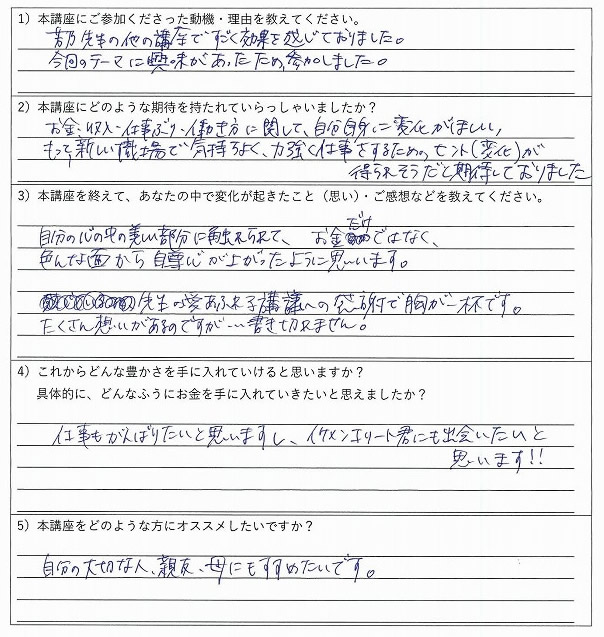 1）本講座にご参加くださった動機・理由を教えてください。
先生の他の講座ですごく効果を感じておりました。
今回のテーマに興味があったため、参加しました。
2）本講座にどのような期待を持たれていらっしゃいましたか？
お金、収入・仕事ぶり・働き方に関して、自分自身に変化がほしい、
もっと新しい職場で気持ちよく、力強く仕事をするための、ヒント(変化)が
得られそうだと期待しておりました
3）本講座を終えて、あなたの中で変化が起きたこと（思い）・ご感想などを教えてください。
自分の心の中の美しい部分に触れられて、お金だけではなく、
色んな面から自尊心が上がったように思います。
先生の愛あふれる講議への感謝で胸が一杯です。
たくさん想いがあるのですが…書き切れません。
4）これからどんな豊かさを手に入れていけると思いますか？
具体的に、どんなふうにお金を手に入れていきたいと思えましたか？
仕事もがんばりたいと思いますし、イケメンエリート君にも出会いたいと
思います!!
5）本講座をどのような方にオススメしたいですか？
自分の大切な人、親友、母にもすすめたいです。